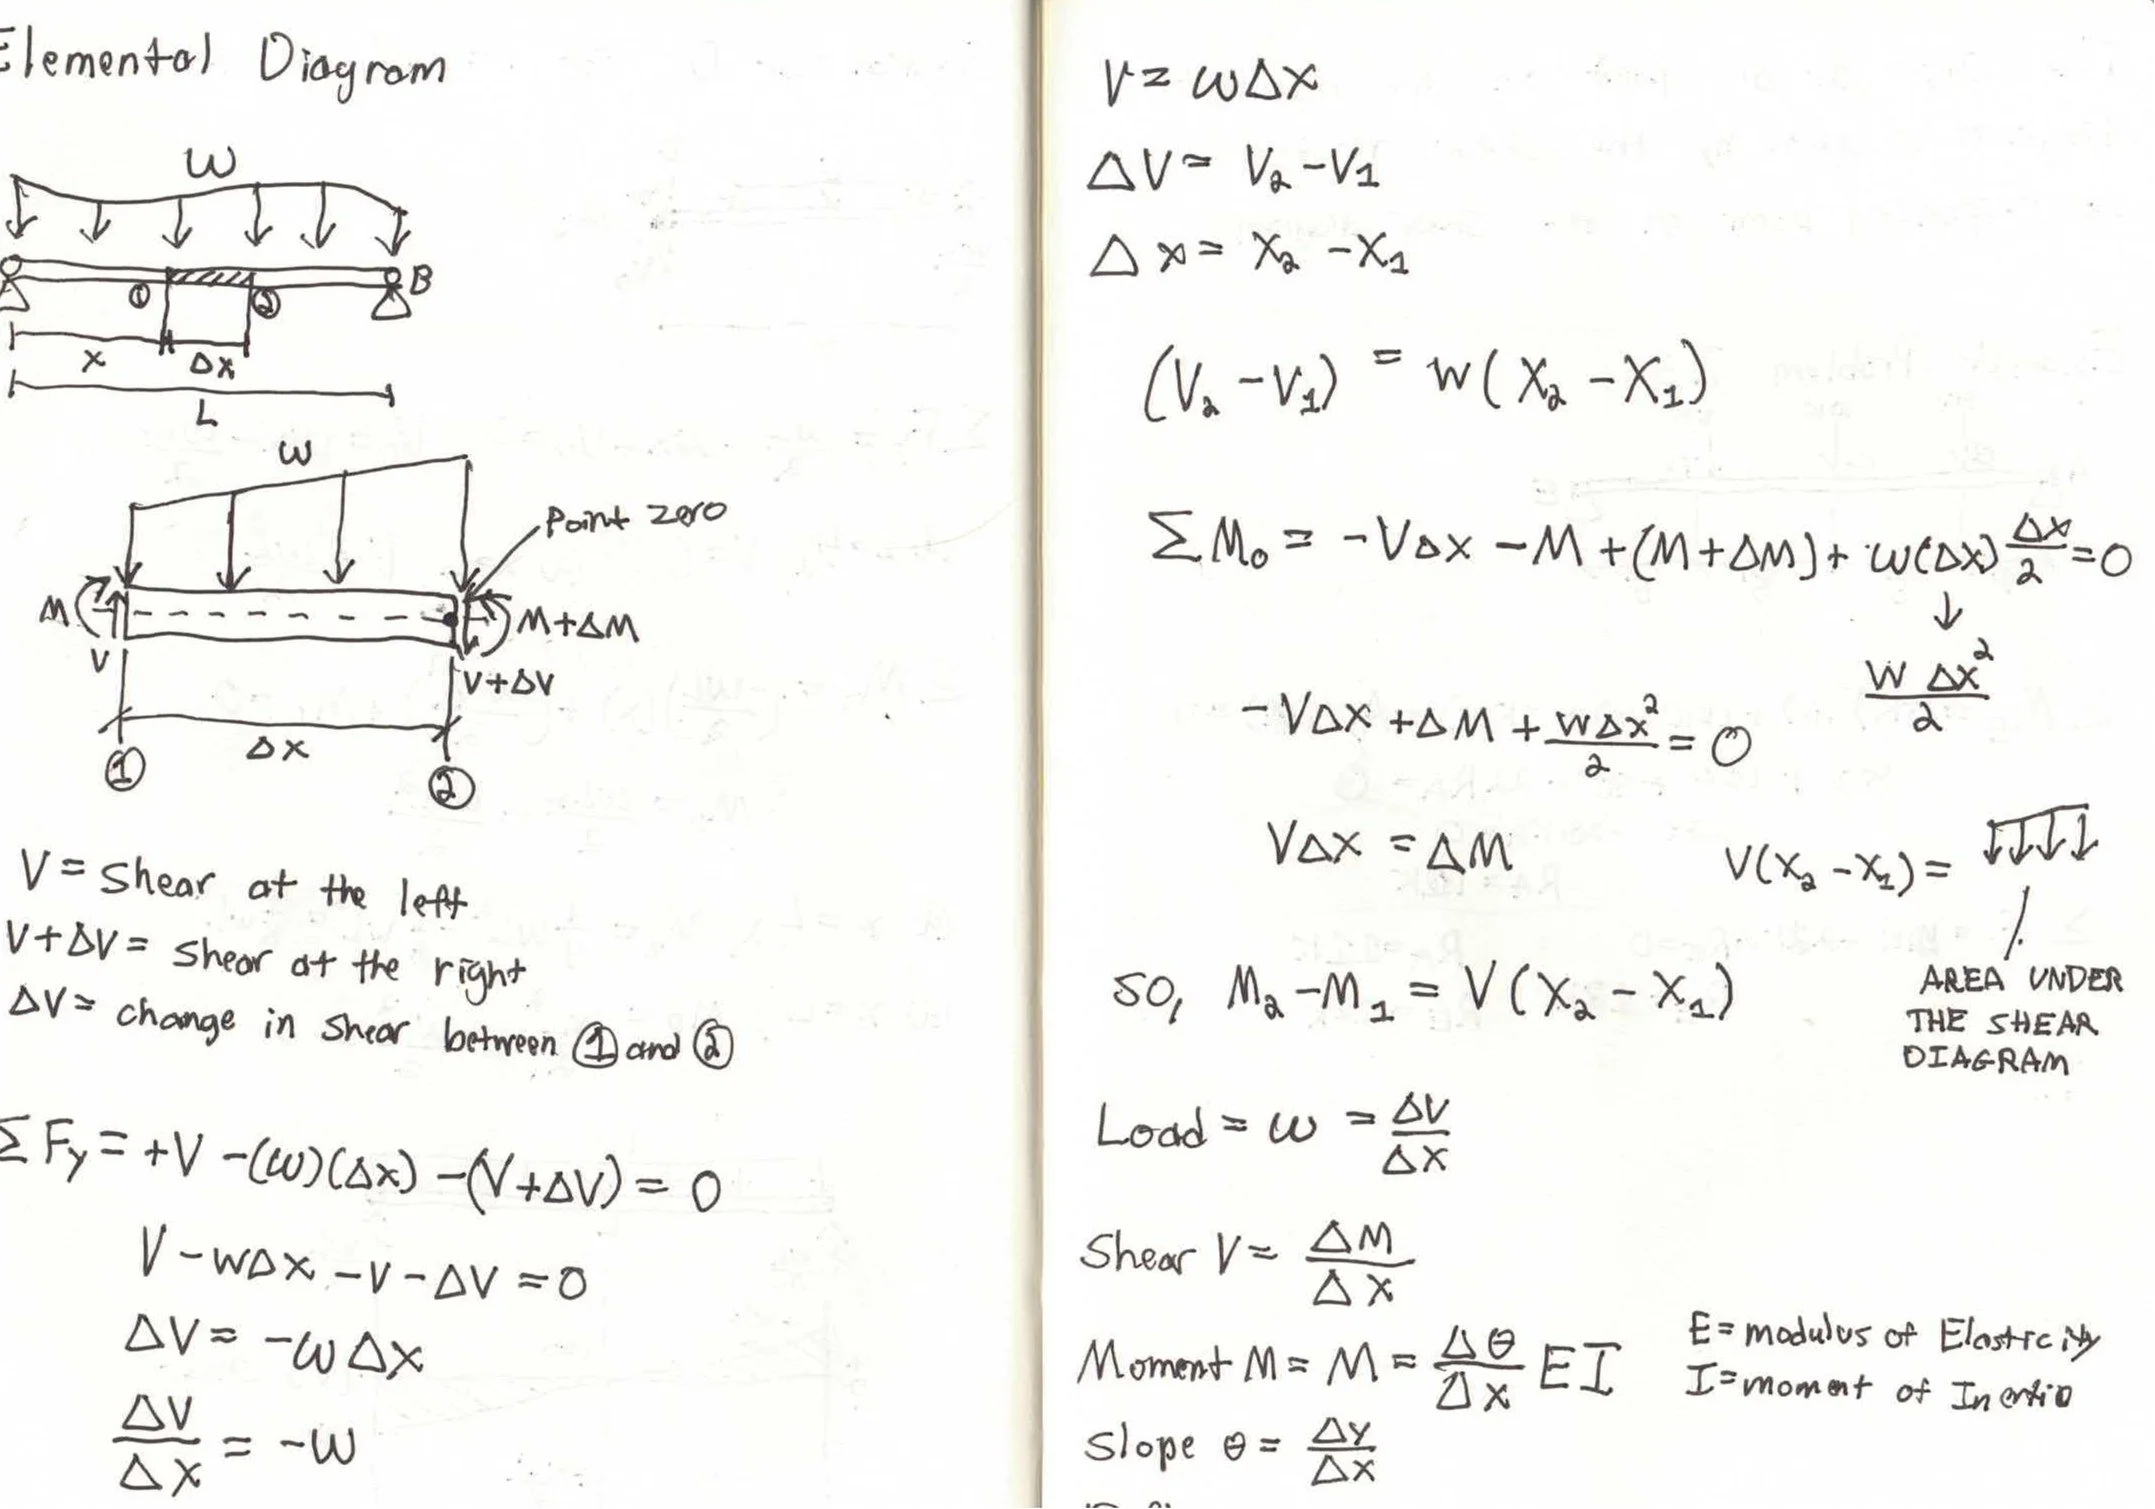 Elemental Diagram
w
① ② B
x Δx
L
w
Point zero
M M+ΔM
V V+ΔV
Δx
① ②
V = Shear at the left
V+ΔV = Shear at the right
ΔV = change in Shear between ① and ②
ΣFy = +V -(w)(Δx) -(V+ΔV) = 0
V - wΔx - V - ΔV = 0
ΔV = -wΔx
ΔV/Δx = -w
V = wΔx
ΔV = V2 - V1
Δx = X2 - X1
(V2 - V1) = w(X2 - X1)
ΣMo = -VΔx - M + (M+ΔM) + w(Δx) Δx/2 = 0
↓
WΔx²/2
-VΔx + ΔM + WΔx²/2 = 0
VΔx = ΔM V(X2 - X1) =
AREA UNDER
THE SHEAR
DIAGRAM
SO, M2 - M1 = V(X2 - X1)
Load = w = ΔV/Δx
Shear V = ΔM/Δx
Moment M = M = Δθ/Δx EI
E = modulus of Elasticity
I = moment of Inertia
Slope θ = Δy/Δx